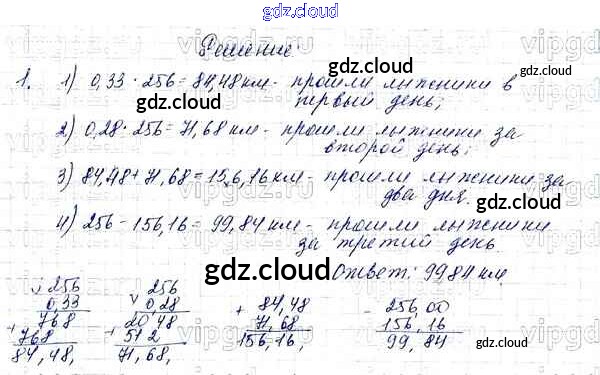 gdz.cloud
Решение:
1. 1) 0,33 · 256 = 84,48 км - прошли лыжники в
первый день;
2) 0,28 · 256 = 71,68 км - прошли лыжники за
второй день;
3) 84,48 + 71,68 = 156,16 км - прошли лыжники за
два дня.
4) 256 - 156,16 = 99,84 км - прошли лыжники
за третий день.
gdz.cloud
gdz.cloud
gdz.cloud
Ответ: 99,84 км.
256 256 + 84,48 - 256,00
0,33 0,28 71,68 156,16
768 20,48 156,16, 99,84
+ 768 + 512
84,48, 71,68,
gdz.cloud
gdz.cloud
gdz.cloud